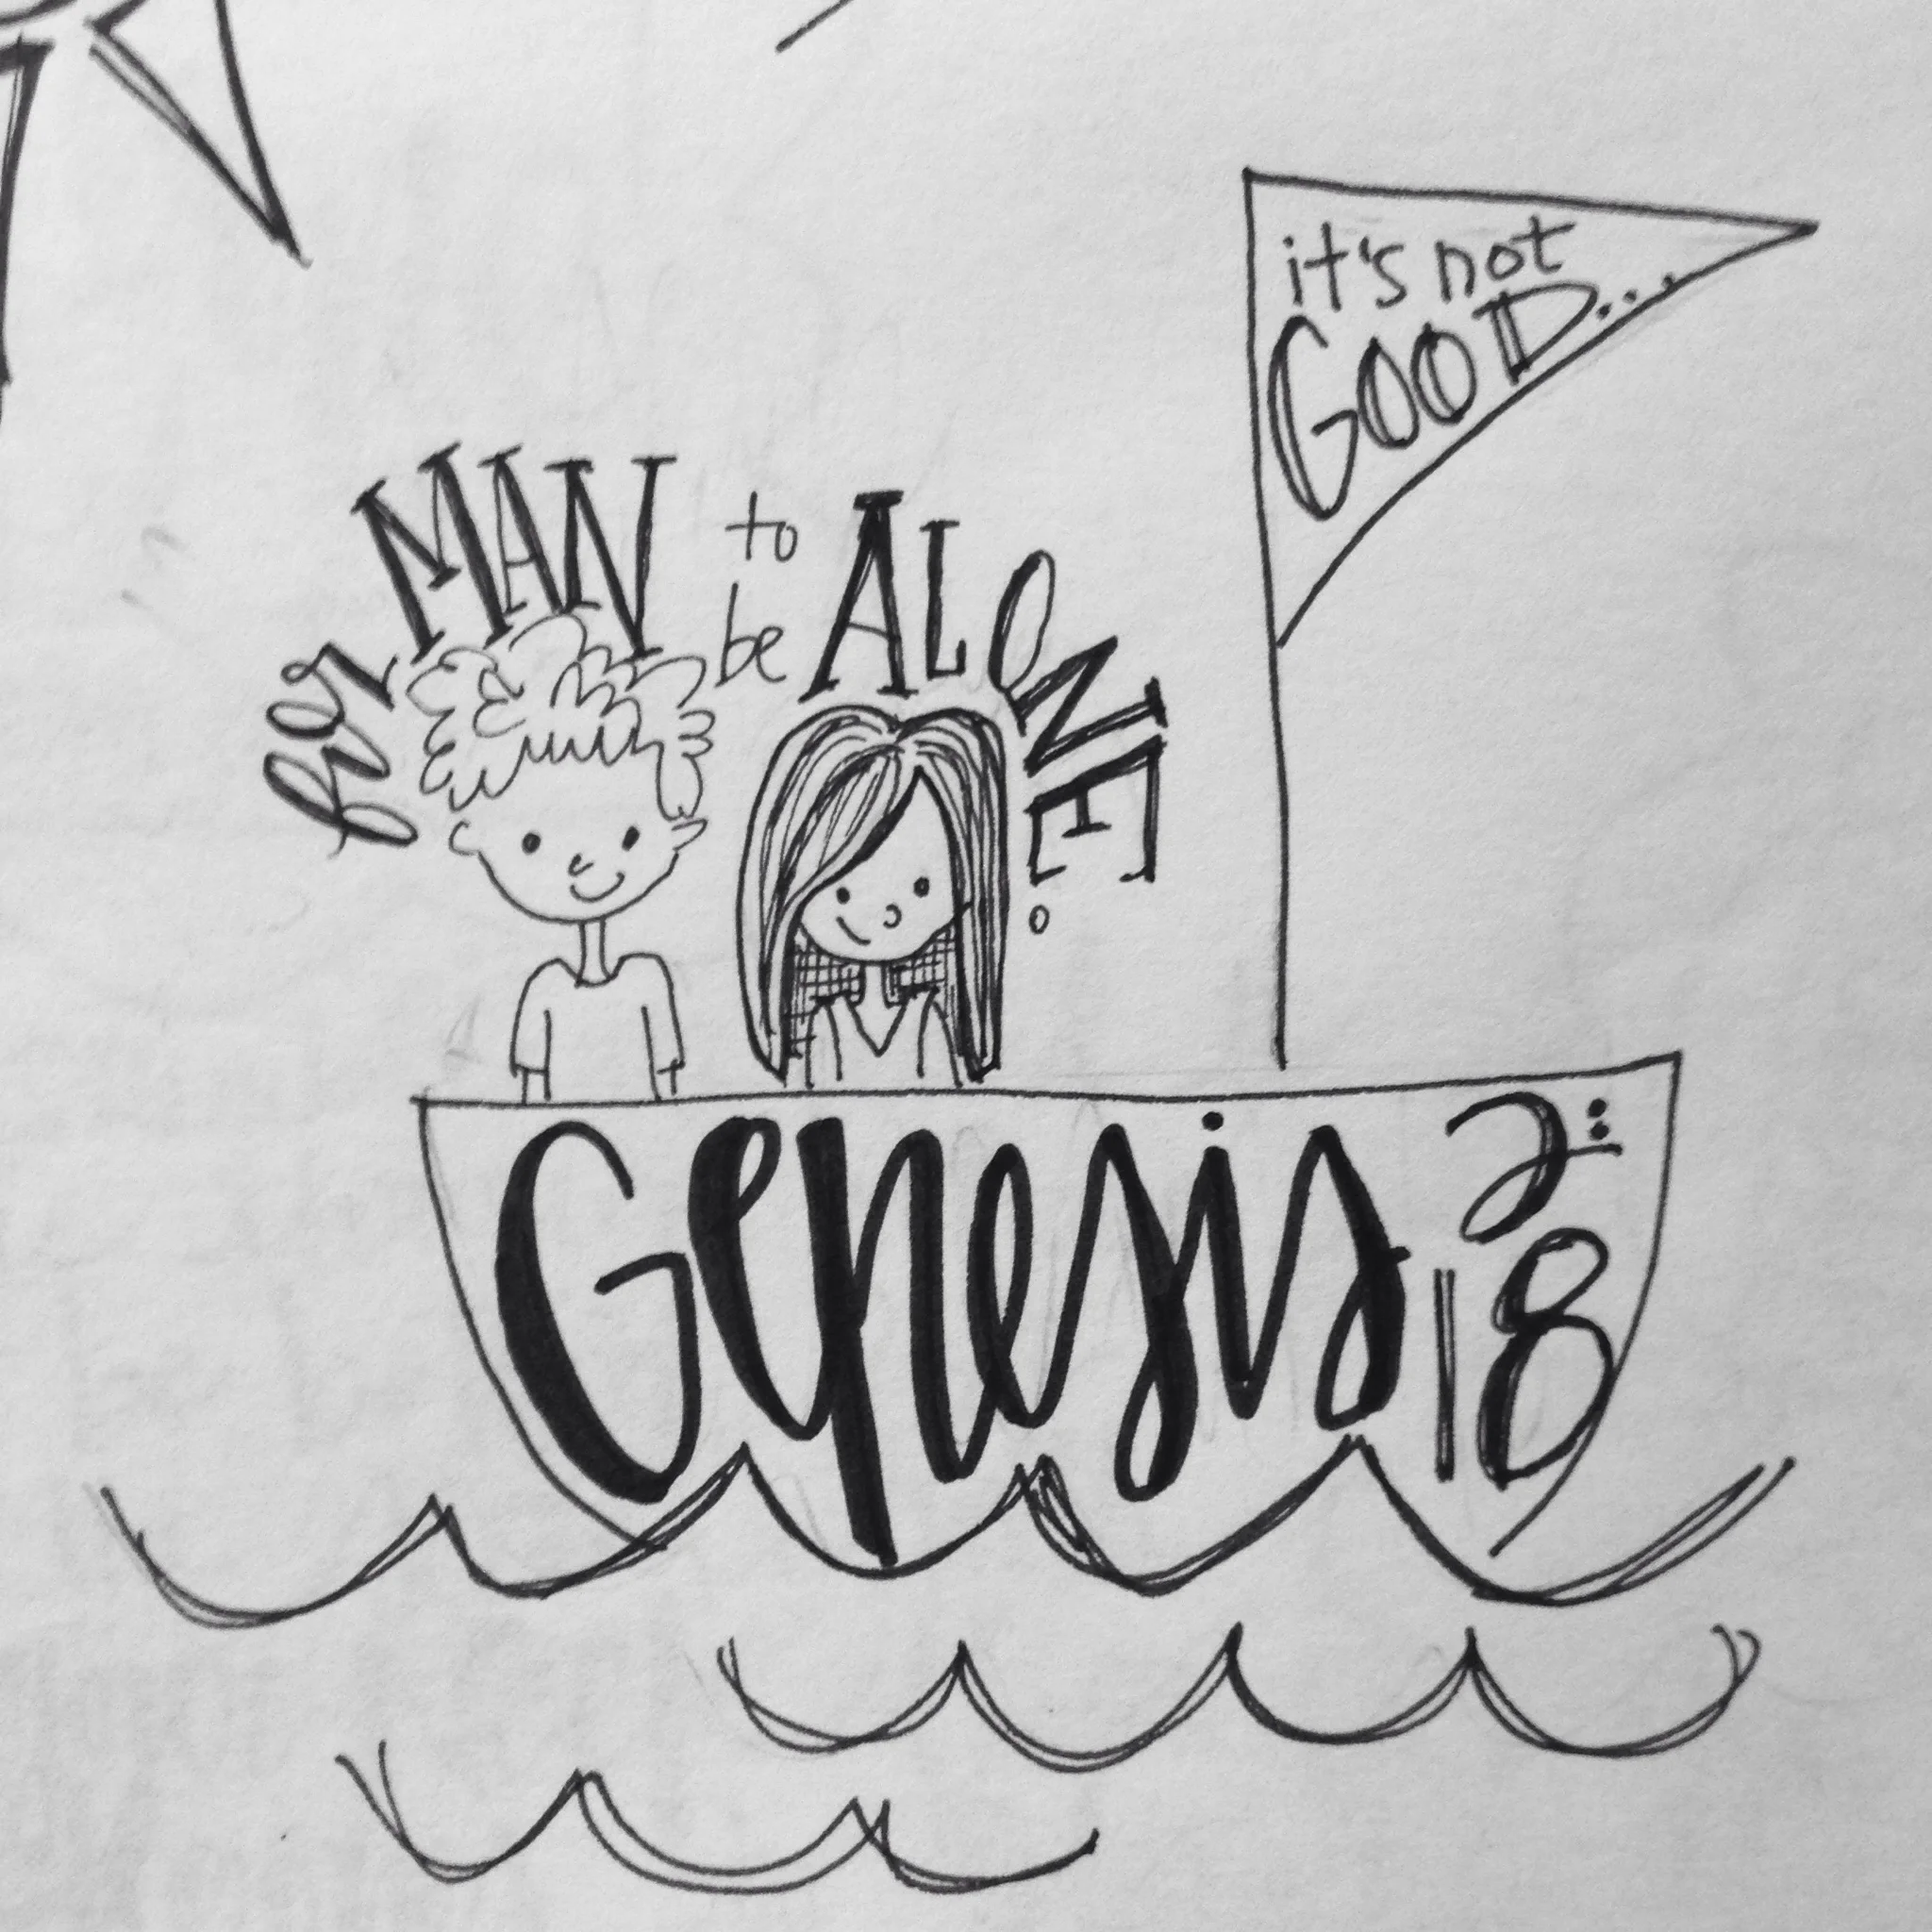 it's not
GOOD...
for MAN to be ALONE.
Genesis 2:
18